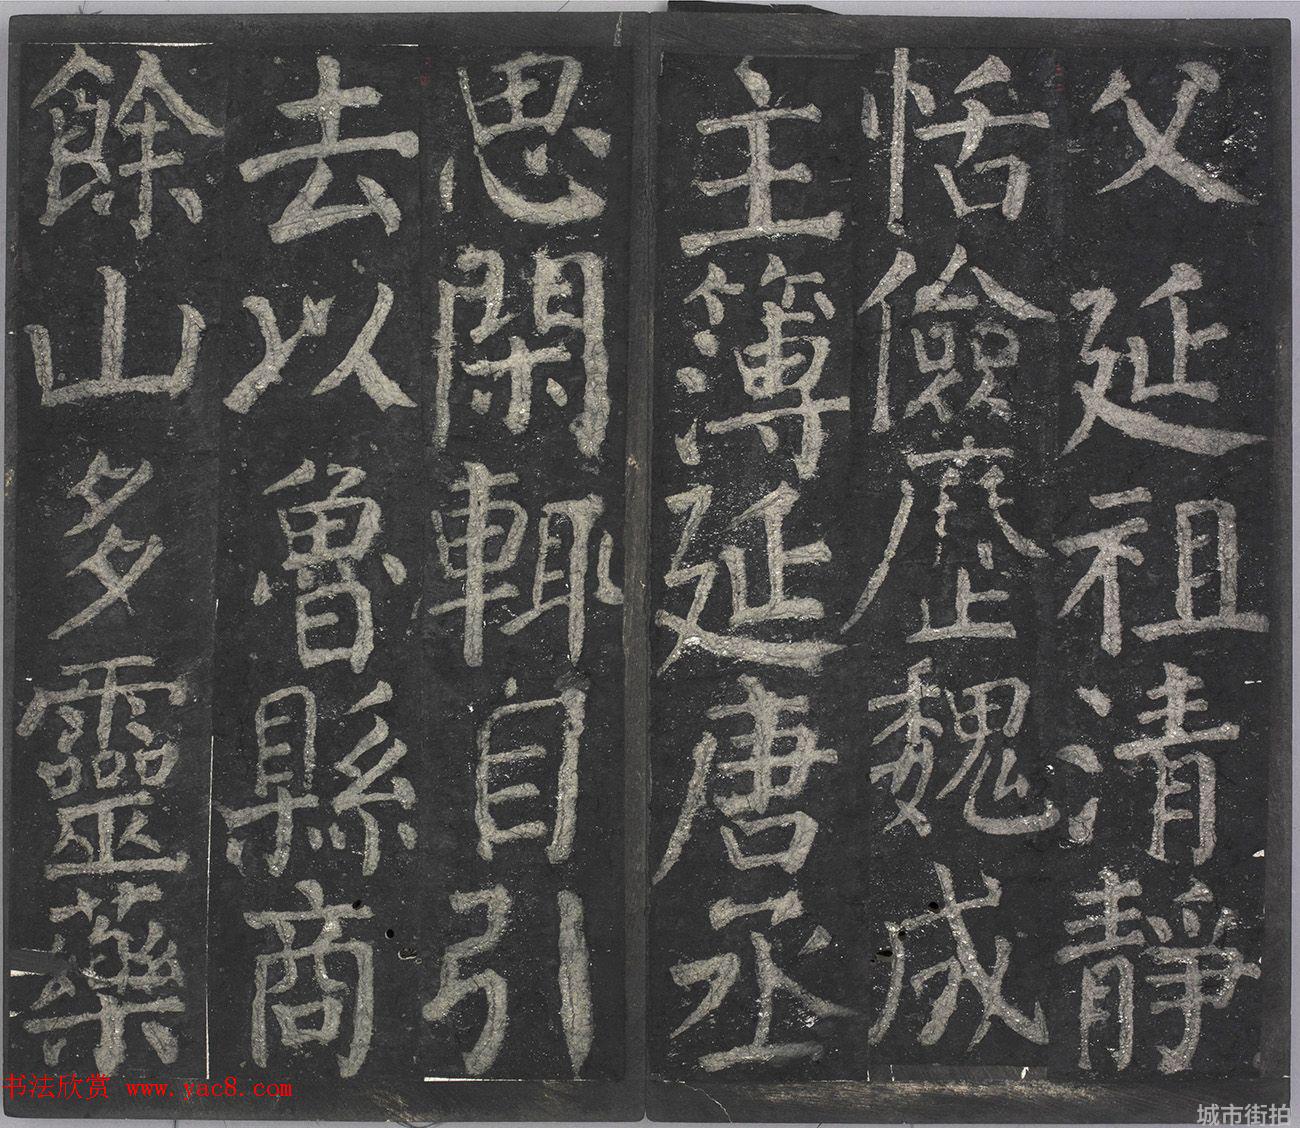 父延祖清靜
恬儉歷魏成
主簿延唐丞
思閑輒自引
去以魯縣商
餘山多靈藥
书法欣赏 www.yac8.com
城市街拍